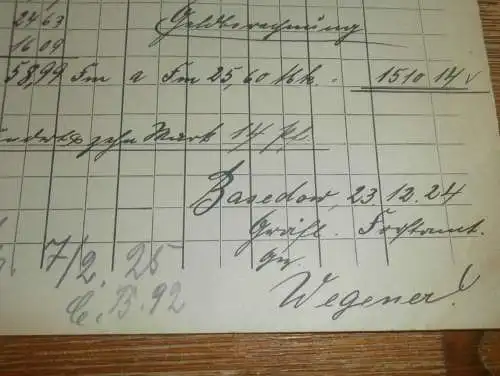 2463
Geldberechnung
1609
58,99 Fm a Fm 25,60 Mk. 1510 14
zehn Mark 14 Pf.
Basedow, 23.12.24
Gräfl. Forstamt.
gez.
Wegener!
7/2. 25
C.B. 92